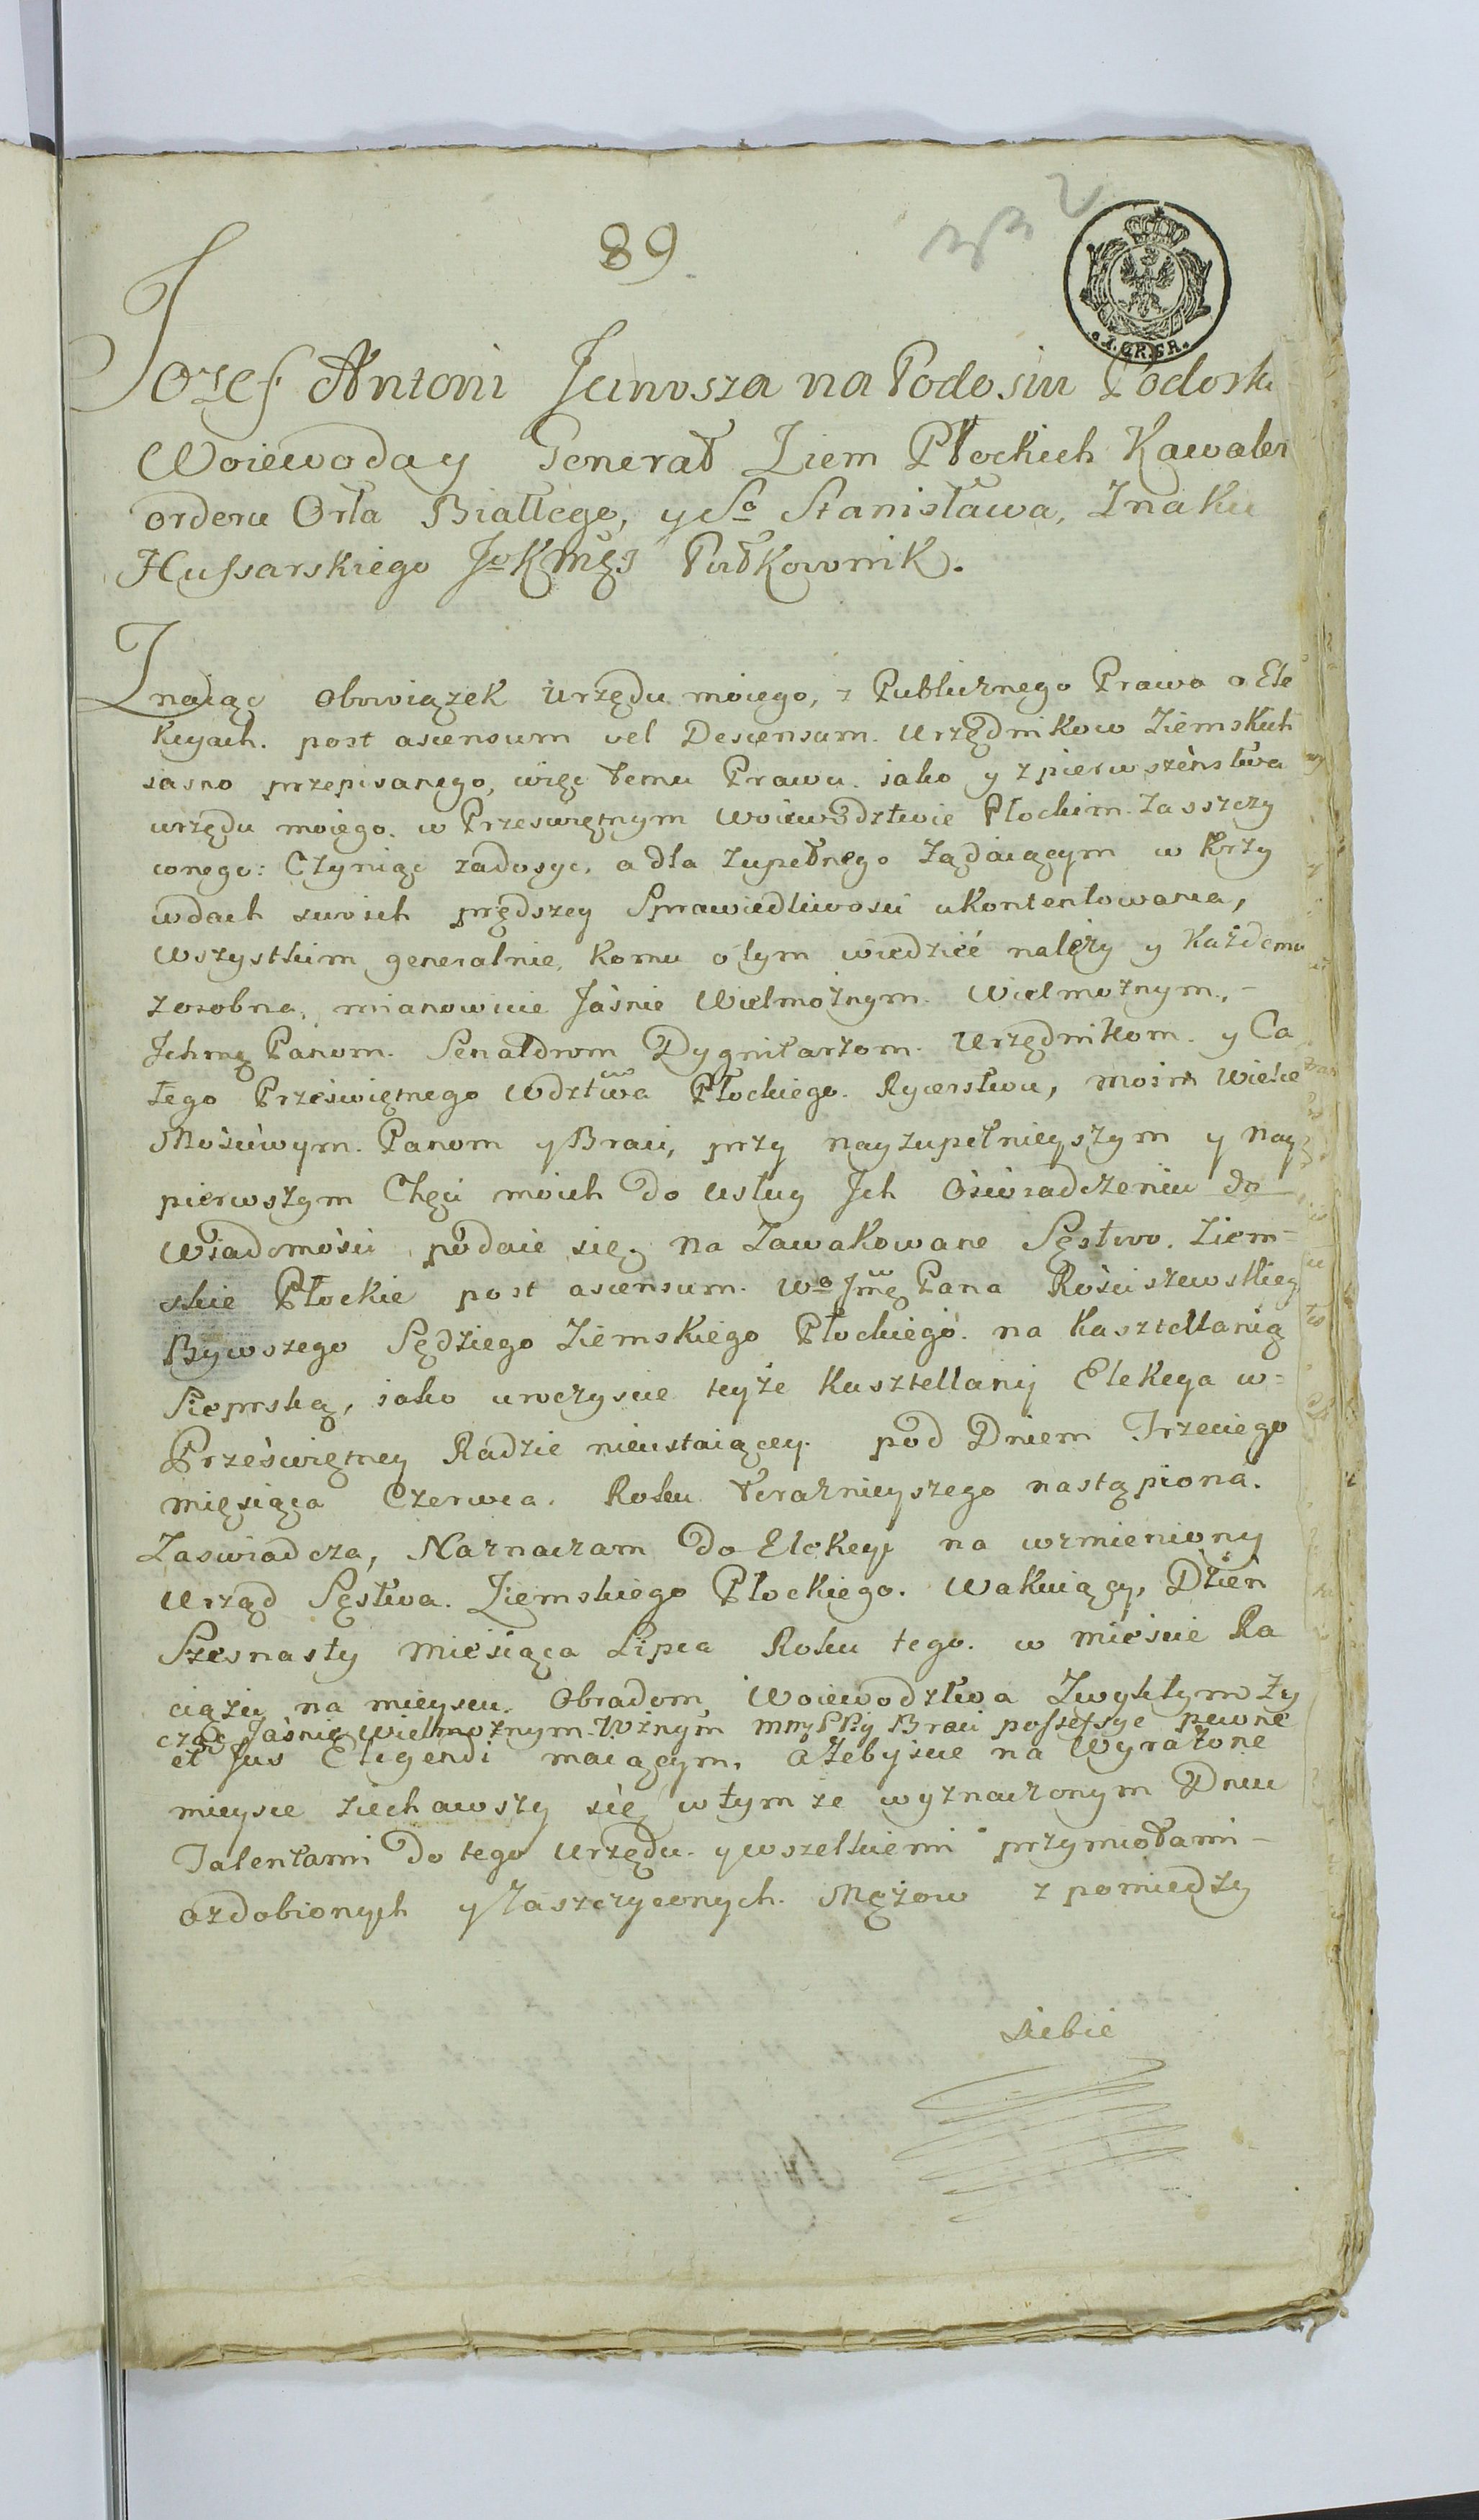 89
332
I.GR.SR.
Jozef Antoni Junosza na Podosiu Podoski
Woiewoda y Generał Ziem Płockich Kawaler
orderu Orła Biallego, y Sº Stanisława, Znaku
Hussarskiego Jº K Mći Pułkownik.
Znaiąc Obowiązek Urzędu moiego, z Publicznego Prawa o Ele
kcyach. post ascensum vel Descensum. Urzędnikow Ziemskich
iasno przepisanego, więc temu Prawu. iako y z pierwszeństwa
urzędu moiego. w Prześwietnym Woiewodztwie Płockim. Zasszczy
conego: Czyniąc zadosyć, a dla zupełnego Żądaiącym w Krzy
wdach swoich prędszey Sprawiedliwości ukontentowania,
Wszystkim generalnie, komu o tym wiedzieć należy y każdemu
zosobna, mianowicie Jaśnie Wielmożnym. Wielmożnym., -
Jchmę Panom. Senatorom Dygnitarzom. Urzędnikom. y Ca
łego Prześwietnego Wdztwa Płockiego. Rycerstwu, moim Wielce
Mościwym. Panom y Braci, przy nayzupełnieyszym y Nay
pierwszym Chęci moich do usług Jch Oświadczeniu do
Wiadomości podaie się, na Zawakowane Sęstwo. Ziem-
skie Płockie post ascensum. Wº Jmę Pana Rościszewskieg
Bywszego Sędziego Ziemskiego Płockiego. na Kasztellanią
Sieprską, iako uroczyscie teyże Kasztellanij Elekcya w=
Prześwietney Radzie nieustaiącey. pod Dniem Trzeciego
miesiąca Czerwca. Roku teraźnieyszego nastąpiona.
Zaswiadcza, Naznaczam do Elekcyi na wzmieniony
Urząd Sęstwa. Ziemskiego Płockiego. Wakuiący, Dzień
Szesnasty Miesiąca Lipca Roku tego. w mieście Ra
ciążu na mieyscu. Obradom Woiewodztwa Zwykłym Ży
cząc Jaśnie Wielmożnym. Wżnym Braci possessye pewne
et Jus Eligendi maiącym, ażebyście na Wyrażone
mieysce ziechawszy się w tym że wyznaczonym Dniu
Talentami do tego Urzędu. y wszelkiemi przymiotami -
ozdobionych y Zaszczyconych. Mężow z pomiędzy
siebie